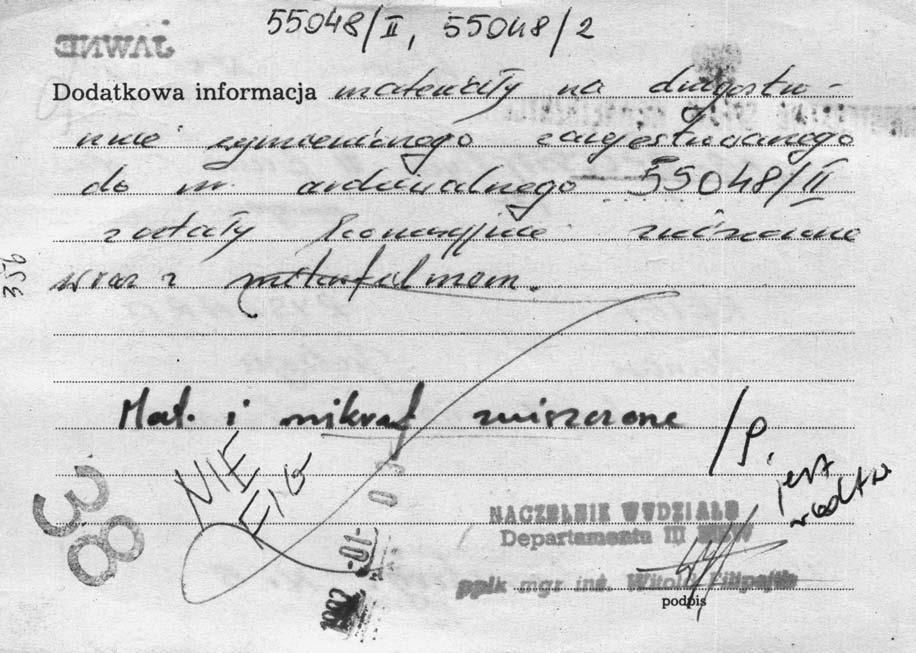 55048/II, 55048/2
JAWNE
Dodatkowa informacja materiały na
wymienionego zarejestrowanego
do nr. archiwalnego 55048/II
zostały komisyjnie zniszczone
wraz z mikrofilmem.
356
Mat. i mikrof zniszczone /P.
NIE
FIG
jest
38
NACZELNIK WYDZIAŁU
Departamentu III MSW
ppłk mgr inż. Witold
podpis